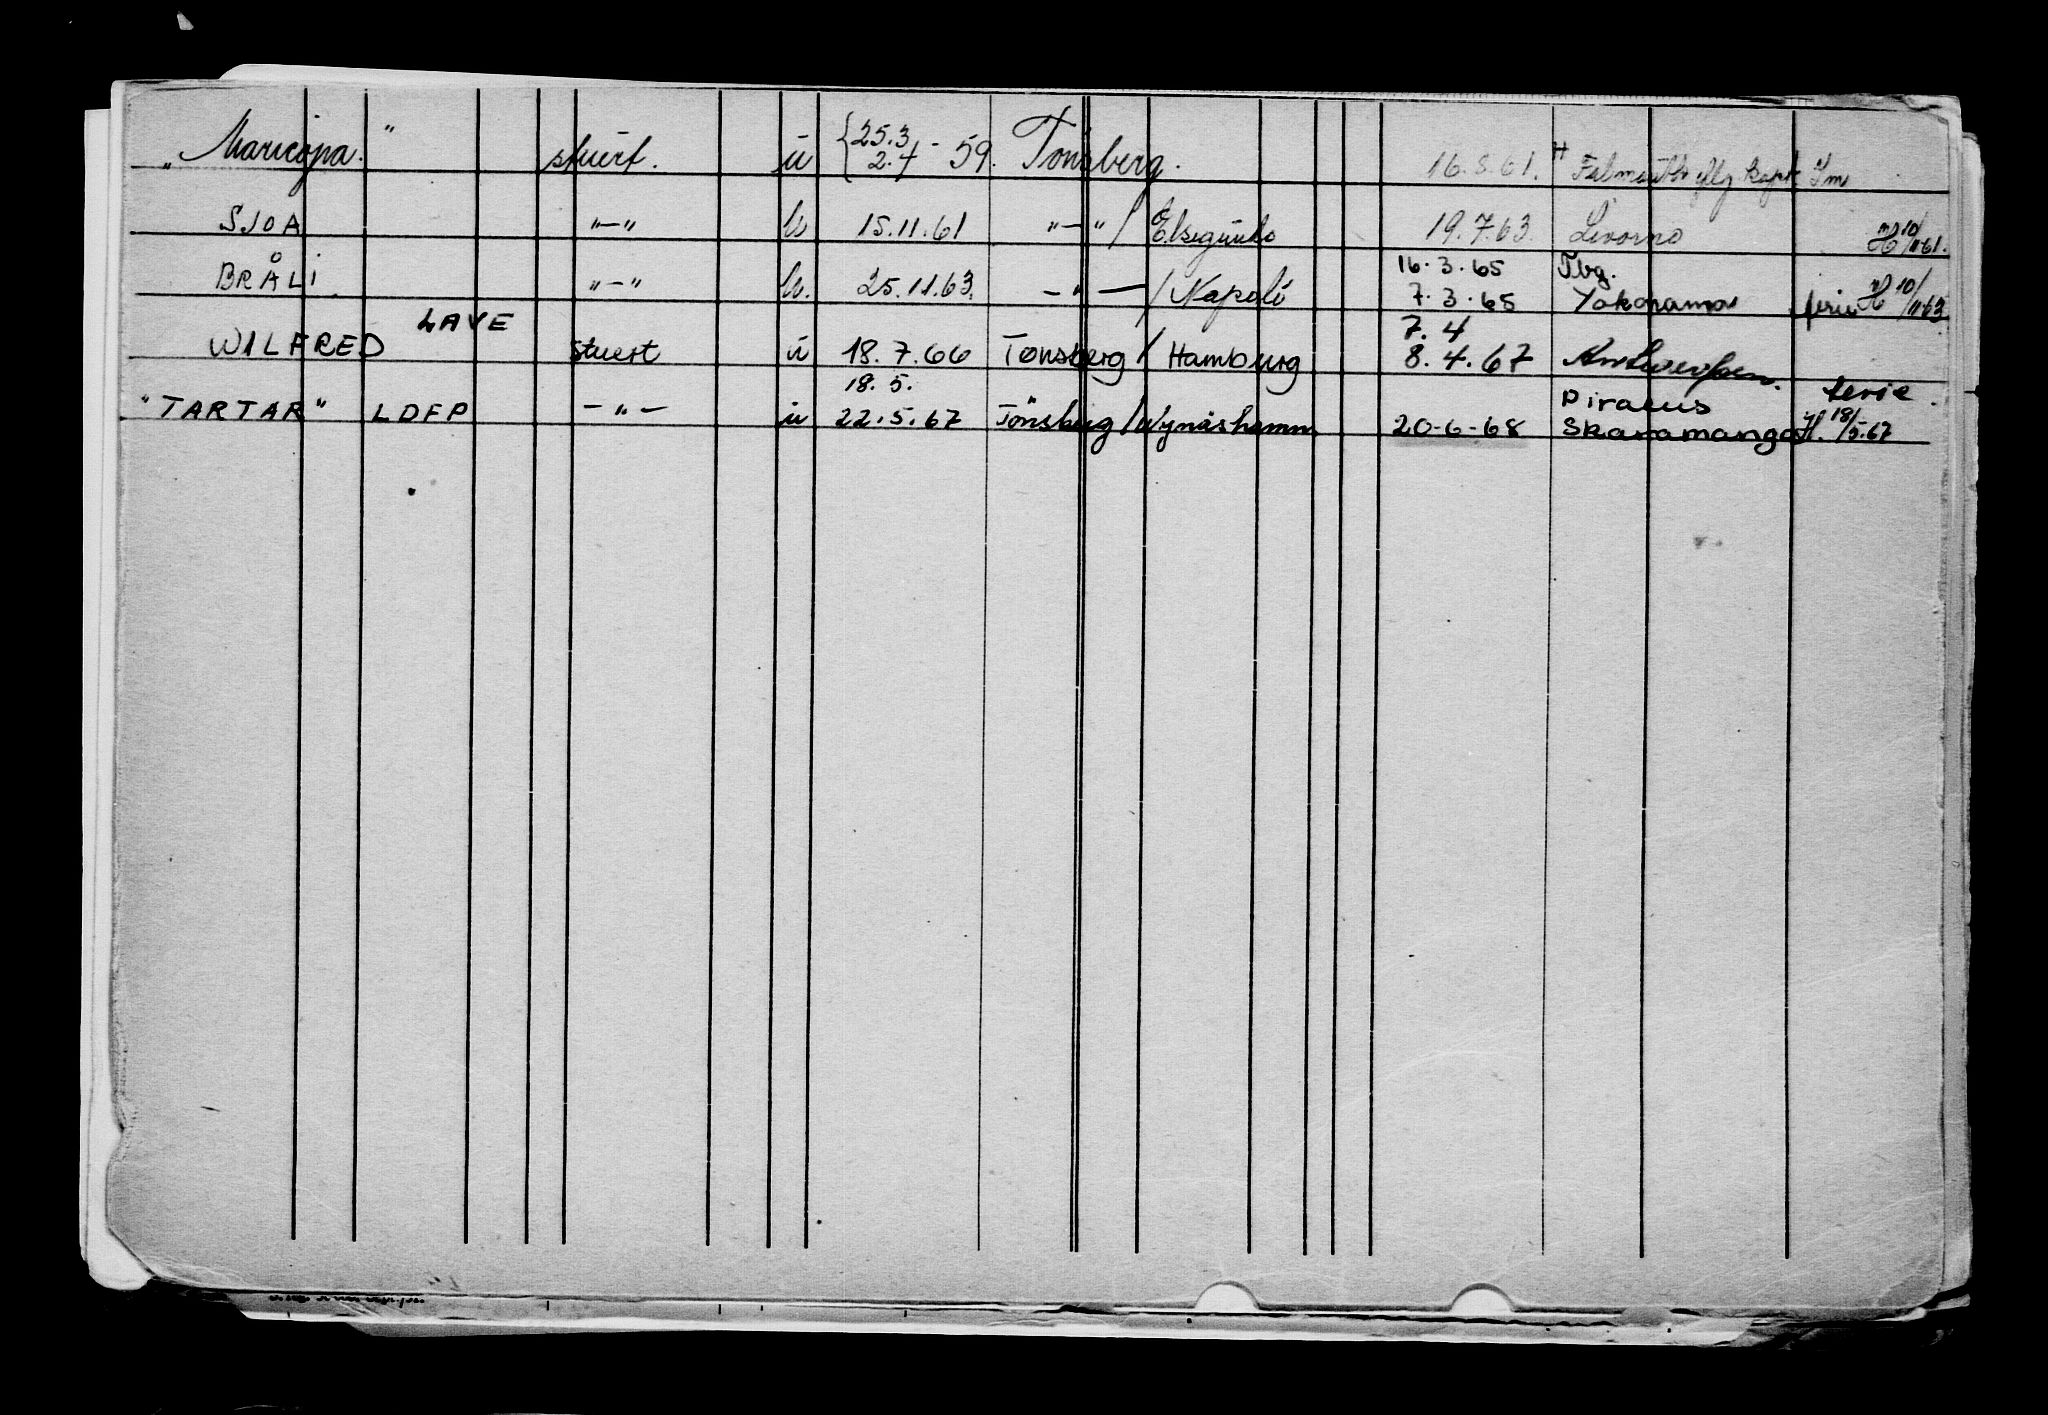 "Maricopa" stuert. u {25.3 - 2.4 59. Tönsberg. 16.8.61. Falmouth
SJOA "—" u 15.11.61 "—" / Elsegundo 19.7.63. Livorno 10/11 61.
BRÅLI "—" u. 25.11.63. —"— / Napoli 16.3.65 Tbg. 7.3.65 Yokohama ferie 10/11 63
WILFRED LAVE stuert u 18.7.66 Tønsberg / Hamburg 7.4 8.4.67 Antwerpen.
"TARTAR" LDFP —"— u 18.5. 22.5.67 Tönsberg / Nynäshamn 20-6-68 Piraeus Skaramanga ferie. H. 18/5-67